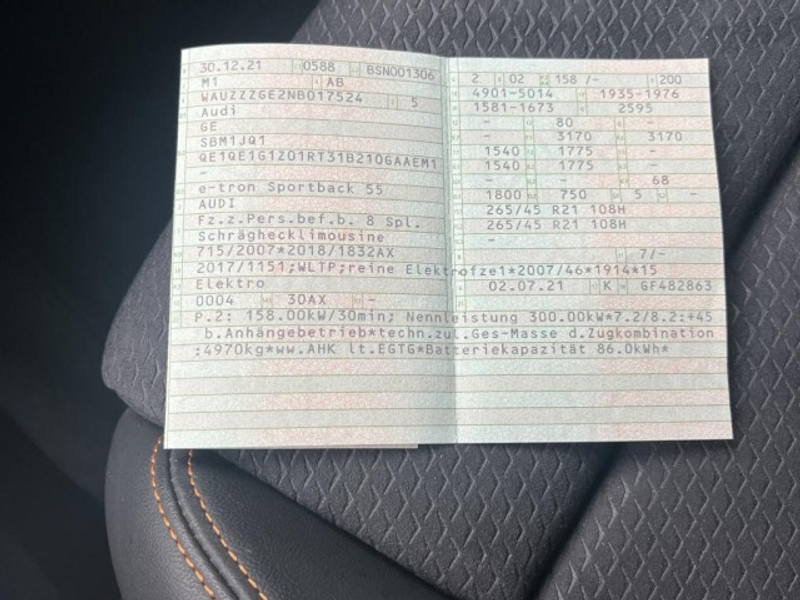 30.12.21 0588 BSN001306
M1 AB
WAUZZZGE2NB017524 5
Audi
GE
SBM1JQ1
QE1QE1G1Z01RT31B210GAAEM1
-
e-tron Sportback 55
AUDI
Fz.z.Pers.bef.b. 8 Spl.
Schräghecklimousine
715/2007*2018/1832AX
2017/1151;WLTP;reine Elektrofz
Elektro
0004 30AX -
2 02 158 /- 200
4901-5014 1935-1976
1581-1673 2595
- 80 -
- 3170 3170
1540 1775 -
1540 1775 -
- - 68
1800 750 5 -
265/45 R21 108H
265/45 R21 108H
-
7/-
e1*2007/46*1914*15
02.07.21 K GF482863
P.2: 158.00kW/30min; Nennleistung 300.00kW*7.2/8.2:+45
b.Anhängebetrieb*techn.zul.Ges-Masse d.Zugkombination
:4970kg*ww.AHK lt.EGTG*Batteriekapazität 86.0kWh*